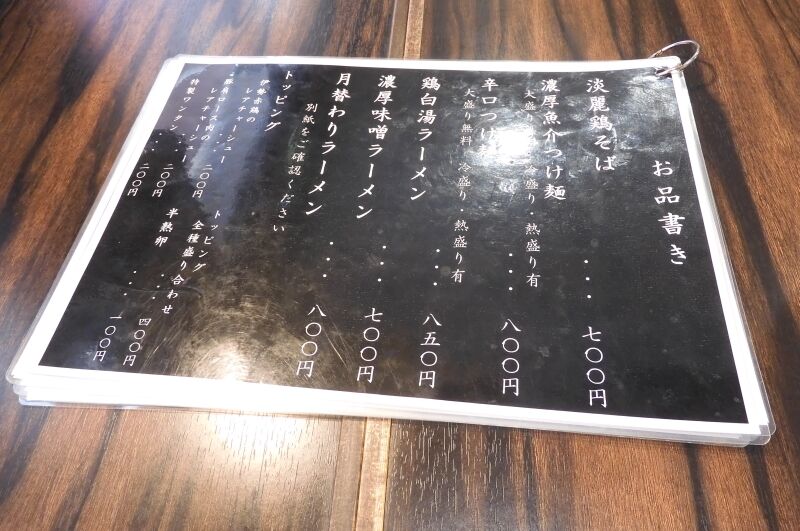 お品書き
淡麗鶏そば ・・・ 七〇〇円
濃厚魚介つけ麺
大盛り 冷盛り・熱盛り有
辛口つけ ・・・ 八〇〇円
大盛り無料 冷盛り 熱盛り有
鶏白湯ラーメン ・・・ 八五〇円
濃厚味噌ラーメン ・・・ 七〇〇円
月替わりラーメン ・・・ 八〇〇円
別紙をご確認ください
トッピング
伊勢赤鶏の
レアチャーシュー ・・・ 二〇〇円
豚肩ロース肉の
レアチャーシュー ・・・ 二〇〇円
特製ワンタン ・・・ 二〇〇円
トッピング
全種盛り合わせ ・・・ 四〇〇円
半熟卵 ・・・ 一〇〇円